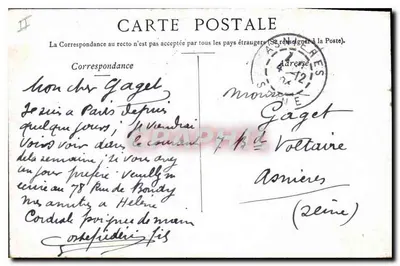 CARTE POSTALE
La Correspondance au recto n'est pas acceptée par tous les pays étrangers (Se renseigner à la Poste).
Correspondance
Adresse
Mon cher Gaget
Je suis à Paris depuis
quelques jours; je viendrai
vous voir dans le courant
de la semaine; si vous avez
un jour préféré veuillez m'
écrire au 78 Rue de Bondy
mes amitiés à Hélène
Cordiale poignée de main
fils
Monsieur
Gaget
7 Bd Voltaire
Asnières
(Seine)